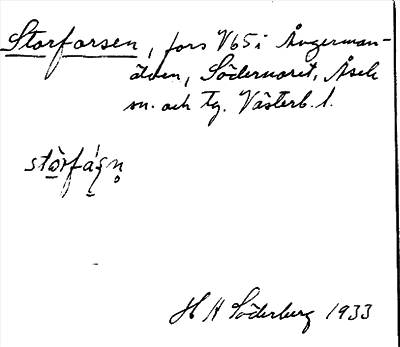 Storforsen, fors V65 i Ångerman-
älven, Södernoret, Åsele
sn. och tg. Västerb. l.
stòrfáʂn̥
H A Söderberg 1933